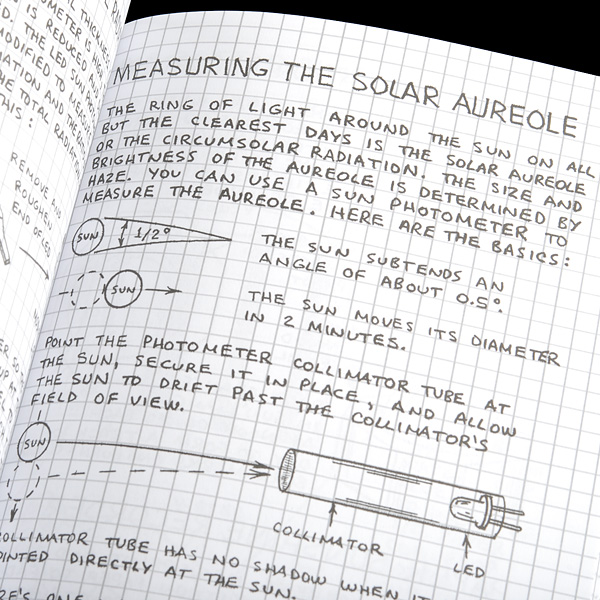 THICKNESS
METER IS
IS REDUCED A
THE LED SUN P
MODIFIED TO MEASU
IATION AND THE
THE TOTAL RADIA
THIS:
REMOVE AND
ROUGHEN
END OF LED
MEASURING THE SOLAR AUREOLE
THE RING OF LIGHT AROUND THE SUN ON ALL
BUT THE CLEAREST DAYS IS THE SOLAR AUREOLE
OR THE CIRCUMSOLAR RADIATION. THE SIZE AND
BRIGHTNESS OF THE AUREOLE IS DETERMINED BY
HAZE. YOU CAN USE A SUN PHOTOMETER TO
MEASURE THE AUREOLE. HERE ARE THE BASICS:
SUN 1/2°
THE SUN SUBTENDS AN
ANGLE OF ABOUT 0.5°.
SUN
THE SUN MOVES ITS DIAMETER
IN 2 MINUTES.
POINT THE PHOTOMETER COLLIMATOR TUBE AT
THE SUN, SECURE IT IN PLACE, AND ALLOW
THE SUN TO DRIFT PAST THE COLLIMATOR'S
FIELD OF VIEW.
SUN
COLLIMATOR
LED
COLLIMATOR TUBE HAS NO SHADOW WHEN IT
OINTED DIRECTLY AT THE SUN.
RE'S ONE